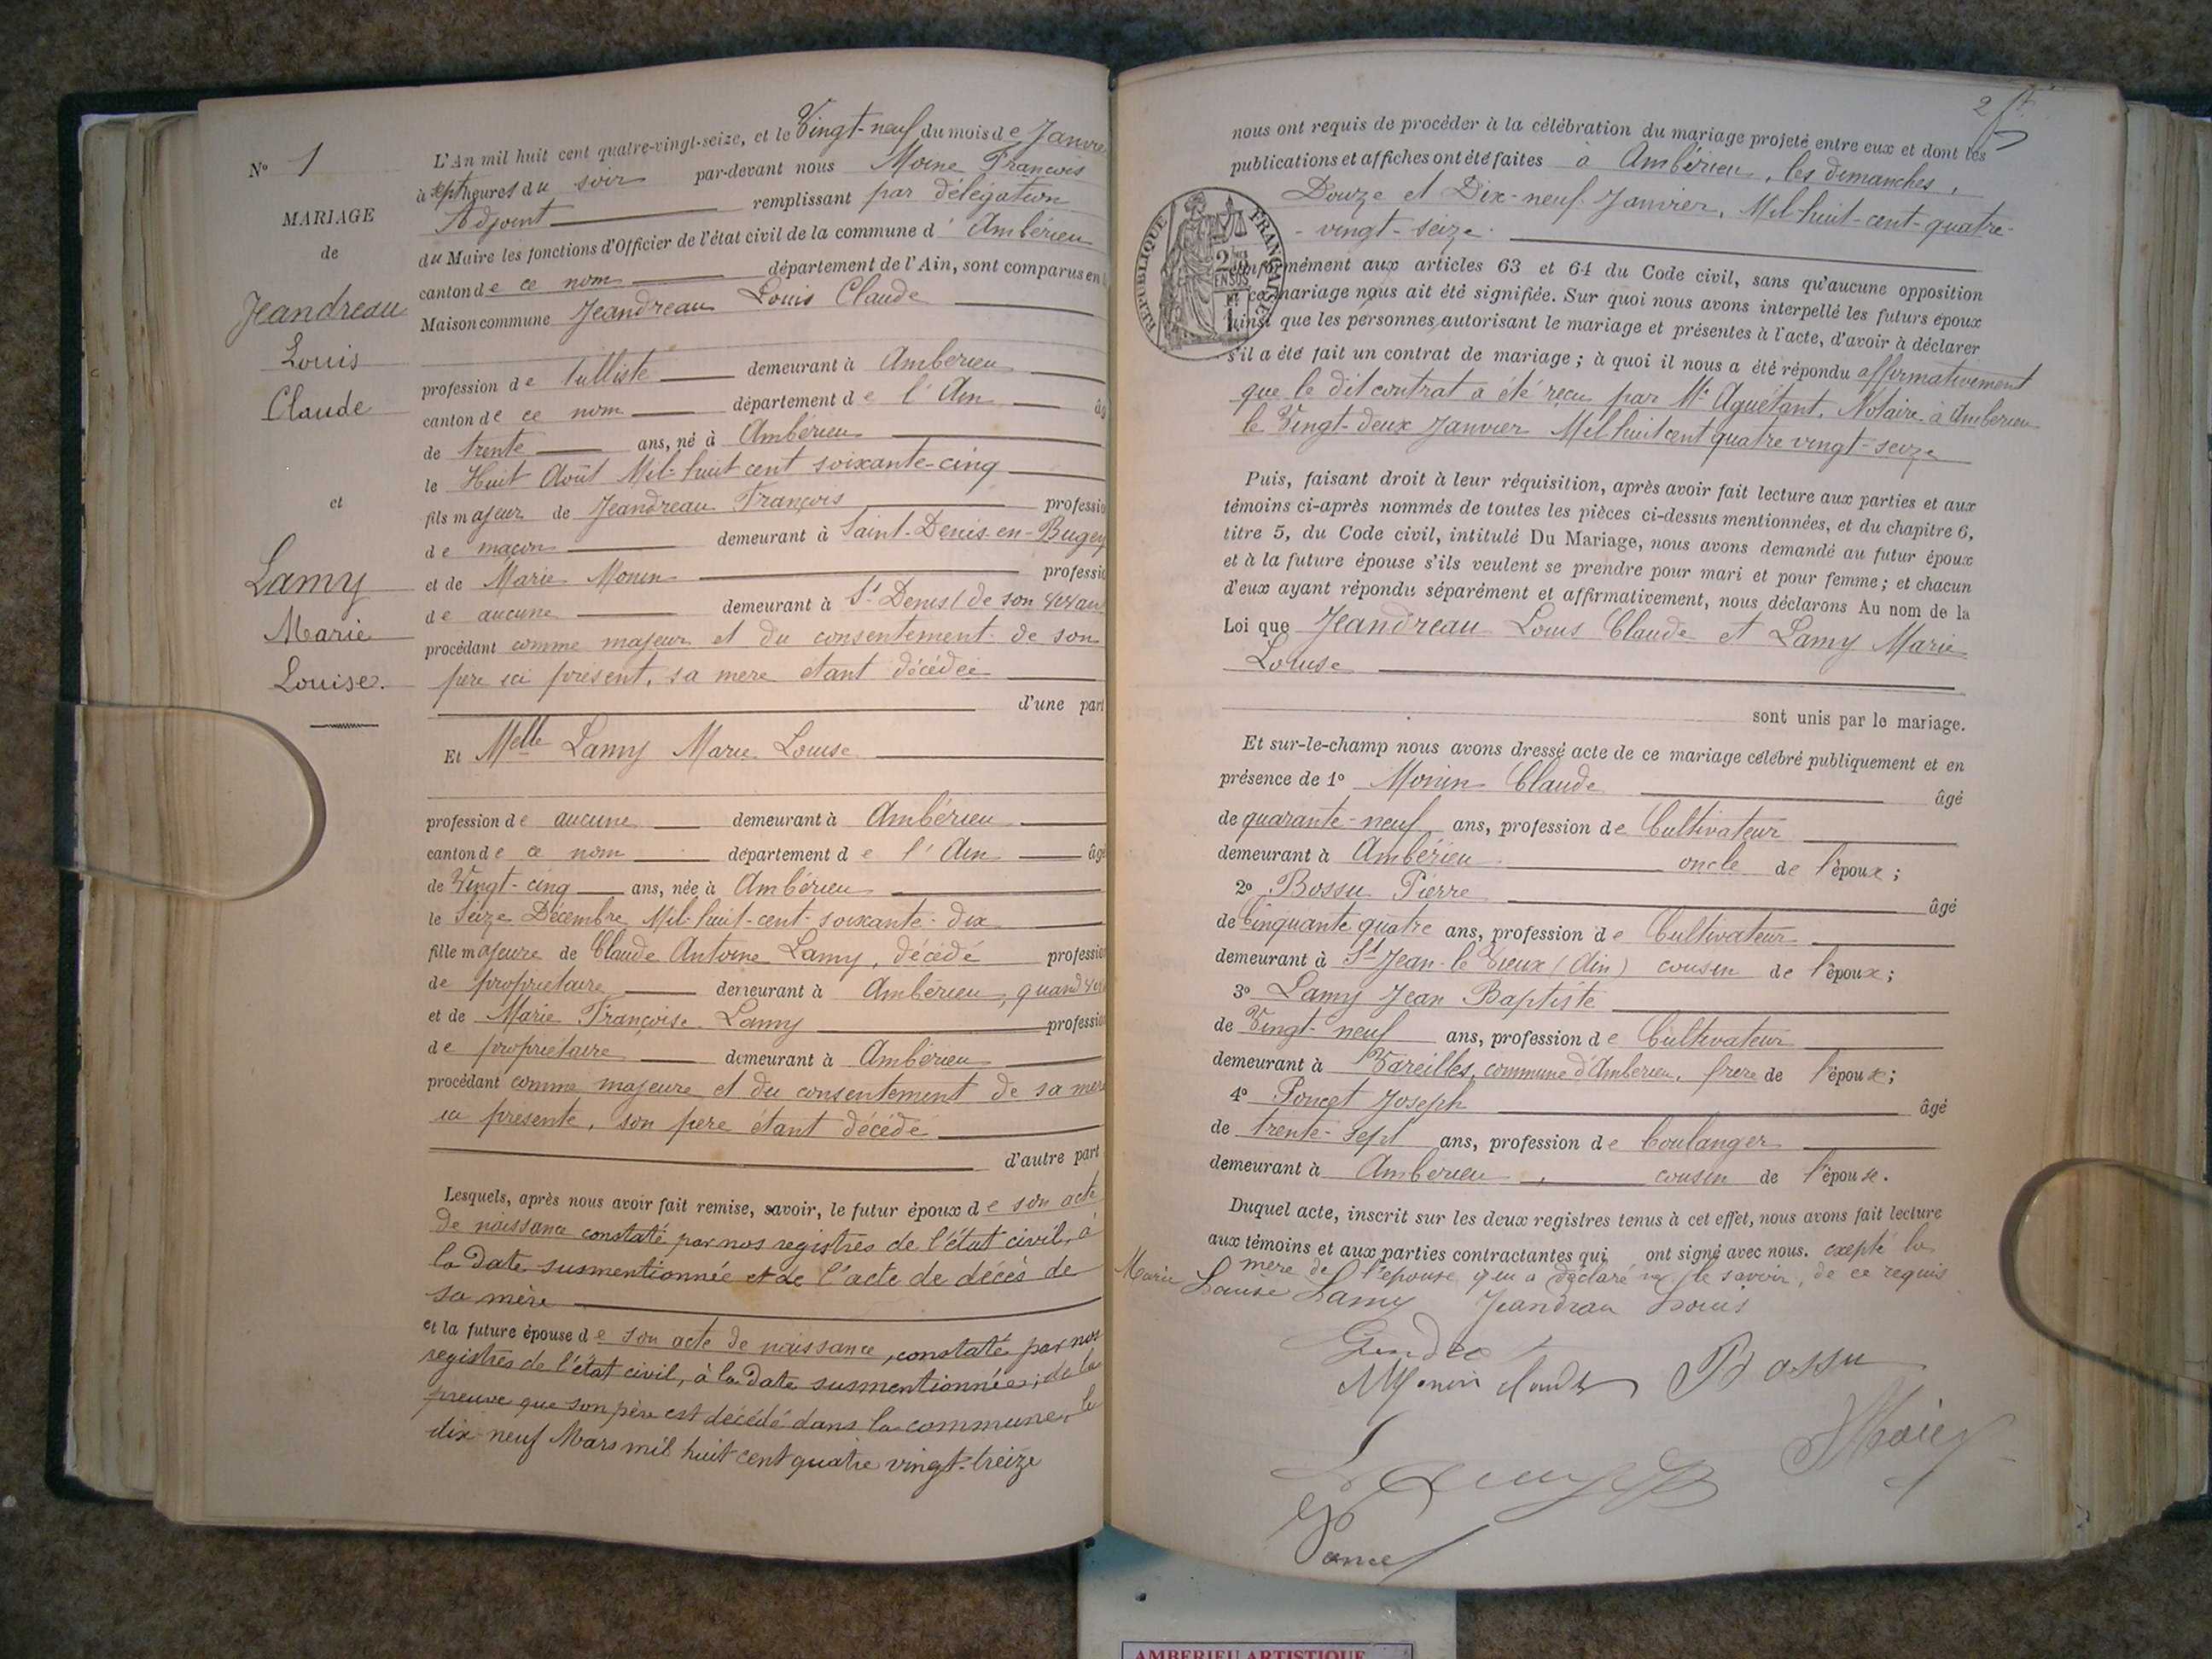 N° 1
MARIAGE
de
Jeandreau
Louis
Claude
et
Lamy
Marie
Louise.
L'An mil huit cent quatre-vingt-seize, et le Vingt-neuf du mois de Janvier
à sept heures du soir par-devant nous Moine François
Adjoint remplissant par délégation
du Maire les fonctions d'Officier de l'état civil de la commune d' Ambérieu
canton de ce nom département de l'Ain, sont comparus en la
Maison commune Jeandreau Louis Claude
profession de tulliste demeurant à Ambérieu
canton de ce nom département de l'Ain âg
de trente ans, né à Ambérieu
le Huit Août Mil-huit cent soixante-cinq
fils majeur de Jeandreau François professio
de maçon demeurant à Saint-Denis-en-Bugey
et de Marie Monin professio
de aucune demeurant à St Denis (de son vivant
procédant comme majeur et du consentement de son
père ici présent, sa mère étant décédée
d'une part
Et Melle Lamy Marie Louise
profession de aucune demeurant à Ambérieu
canton de ce nom département de l'Ain âgé
de Vingt-cinq ans, née à Ambérieu
le Seize Décembre Mil-huit-cent-soixante-dix
fille majeure de Claude Antoine Lamy, décédé profession
de propriétaire demeurant à Ambérieu, quand viv
et de Marie Françoise Lamy profession
de propriétaire demeurant à Ambérieu
procédant comme majeure et du consentement de sa mère
ici présente, son père étant décédé
d'autre part
Lesquels, après nous avoir fait remise, savoir, le futur époux de son acte
de naissance constaté par nos registres de l'état civil, à
la date susmentionnée et de l'acte de décès de
sa mère
et la future épouse de son acte de naissance, constaté par nos
registres de l'état civil, à la date susmentionnée; de la
preuve que son père est décédé dans la commune, le
dix neuf Mars mil huit cent quatre vingt-treize
2
nous ont requis de procéder à la célébration du mariage projeté entre eux et dont les
publications et affiches ont été faites à Ambérieu, les dimanches,
Douze et Dix-neuf Janvier, Mil-huit-cent-quatre-
-vingt-seize.
RÉPUBLIQUE FRANÇAISE
2 EN SUS
conformément aux articles 63 et 64 du Code civil, sans qu'aucune opposition
à ce mariage nous ait été signifiée. Sur quoi nous avons interpellé les futurs époux
ainsi que les personnes autorisant le mariage et présentes à l'acte, d'avoir à déclarer
s'il a été fait un contrat de mariage; à quoi il nous a été répondu affirmativement
que le dit contrat a été reçu par Me Aguétant, Notaire à Ambérieu
le Vingt-deux Janvier Mil huit cent quatre vingt-seize
Puis, faisant droit à leur réquisition, après avoir fait lecture aux parties et aux
témoins ci-après nommés de toutes les pièces ci-dessus mentionnées, et du chapitre 6,
titre 5, du Code civil, intitulé Du Mariage, nous avons demandé au futur époux
et à la future épouse s'ils veulent se prendre pour mari et pour femme; et chacun
d'eux ayant répondu séparément et affirmativement, nous déclarons Au nom de la
Loi que Jeandreau Louis Claude et Lamy Marie
Louise
sont unis par le mariage.
Et sur-le-champ nous avons dressé acte de ce mariage célébré publiquement et en
présence de 1° Monin Claude âgé
de quarante-neuf ans, profession de Cultivateur
demeurant à Ambérieu oncle de l'époux;
2° Bossu Pierre âgé
de Cinquante quatre ans, profession de Cultivateur
demeurant à St Jean-le Vieux (Ain) cousin de l'époux;
3° Lamy Jean Baptiste
de Vingt-neuf ans, profession de Cultivateur
demeurant à Vareilles, commune d'Ambérieu, frère de l'épouse;
4° Poncet Joseph âgé
de trente-sept ans, profession de boulanger
demeurant à Ambérieu, cousin de l'épouse.
Duquel acte, inscrit sur les deux registres tenus à cet effet, nous avons fait lecture
aux témoins et aux parties contractantes qui ont signé avec nous. excepté la
mère de l'épouse qui a déclaré ne le savoir, de ce requis
Marie Louise Lamy Jeandrau Louis
Monin Bossu
AMBERIEU ARTISTIQUE